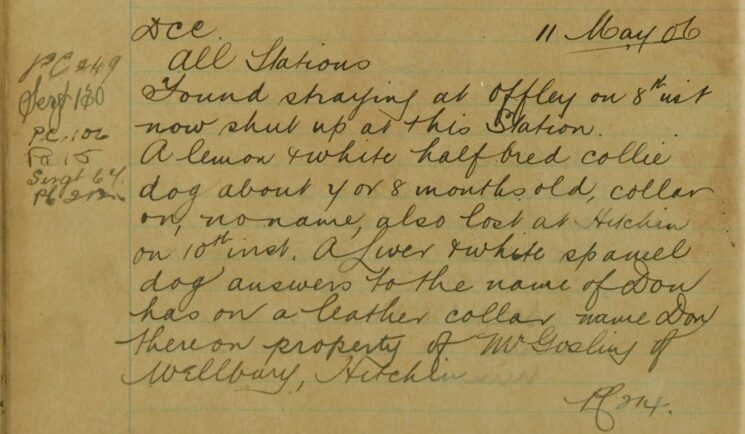 DCC. 11 May 06
All Stations
Found straying at Offley on 8th inst
now shut up at this Station.
A lemon & white half bred collie
dog about 7 or 8 months old, collar
on, no name, also lost at Hitchin
on 10th inst. A Liver & white spaniel
dog answers to the name of Don
has on a leather collar name Don
thereon property of Mr Gosling of
Wellbury, Hitchin
PC 249
Sergt 130
P.C. 106
PC 15
Sergt 64